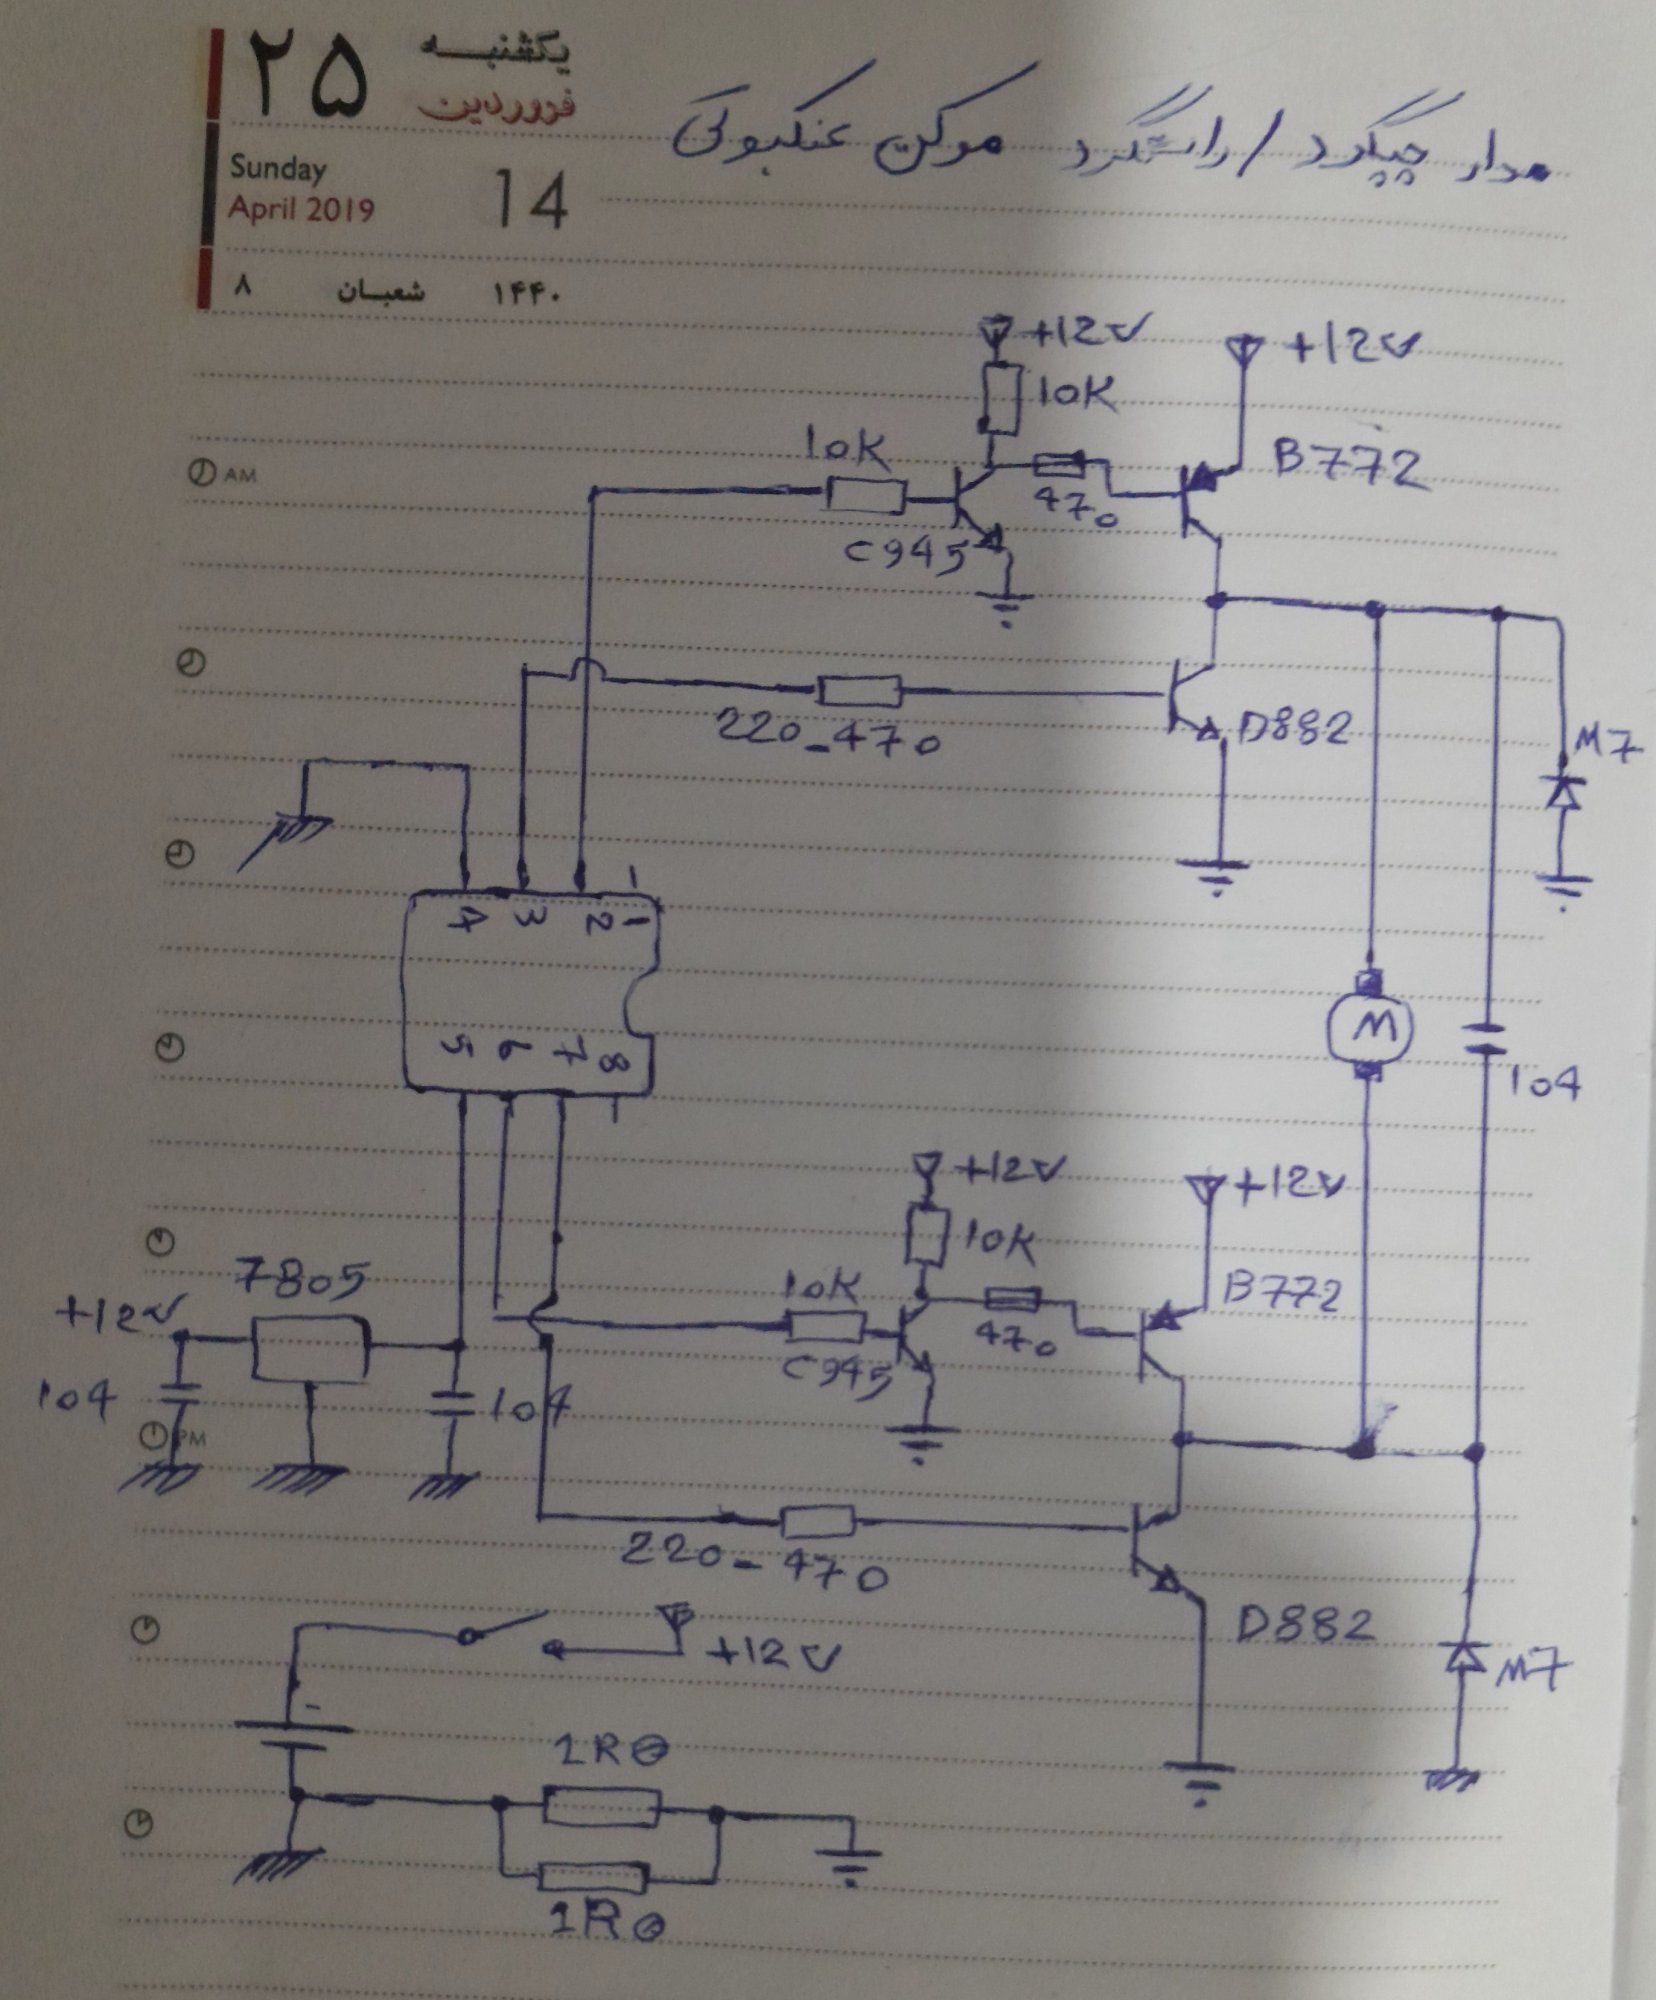 ۲۵ یکشنبه
فروردین
Sunday
April 2019 14
۸ شعبان ۱۴۴۰
مدار چپگرد / راستگرد موکن عنکبوتی
+12v +12v
10K
10K
B772
470
C945
AM
220-470
D882
M7
4 3 2 1
M
5 6 7 8
104
+12v
+12v
10K
7805
B772
10K
+12v
470
C945
104
104
PM
220-470
D882
+12v
M7
-
1RΘ
1RΘ